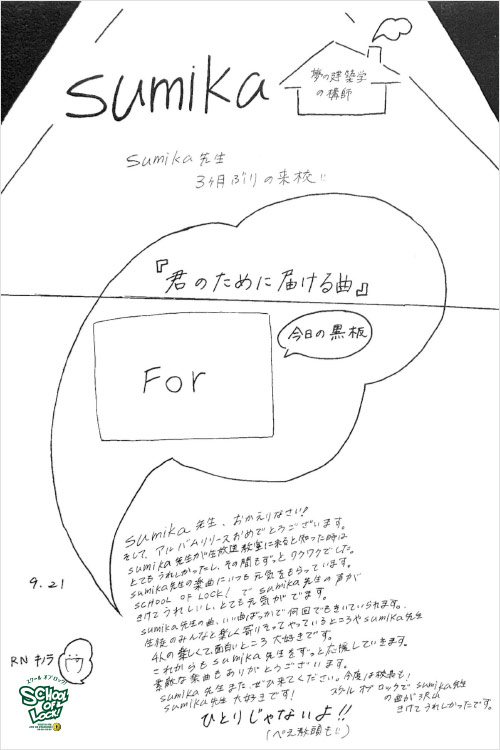 sumika
夢の建築学
の講師
sumika 先生
3ヶ月ぶりの来校!!
『君のために届ける曲』
今日の黒板
For
sumika 先生、おかえりなさい!
そして、アルバムリリースおめでとうございます。
sumika 先生が生放送教室に来ると知った時は
とてもうれしかったし、その間もずっとワクワクでした。
sumika先生の楽曲にいつも元気をもらっています。
SCHOOL OF LOCK! で sumika先生の声が
きけてうれしいし、とても元気がでます。
sumika 先生の曲、いい曲ばっかで何回でもきいていられます。
生徒のみんなと楽しく寄りそってやっているところやsumika先生
4人の楽しくて、面白いところ大好きです。
これからもsumika 先生をずっと応援していきます。
素敵な楽曲もありがとうございます。
sumika 先生また、ぜひ来てください。今度は校長も!
sumika 先生大好きです!
スクール オブ ロックで sumika先生
の曲が沢山
きけてうれしかったです。
ひとりじゃないよ!!
(ぺえ教頭も!!)
9.21
RN キノラ
スクール オブ ロック!
SCHOOL
OF
LOCK!